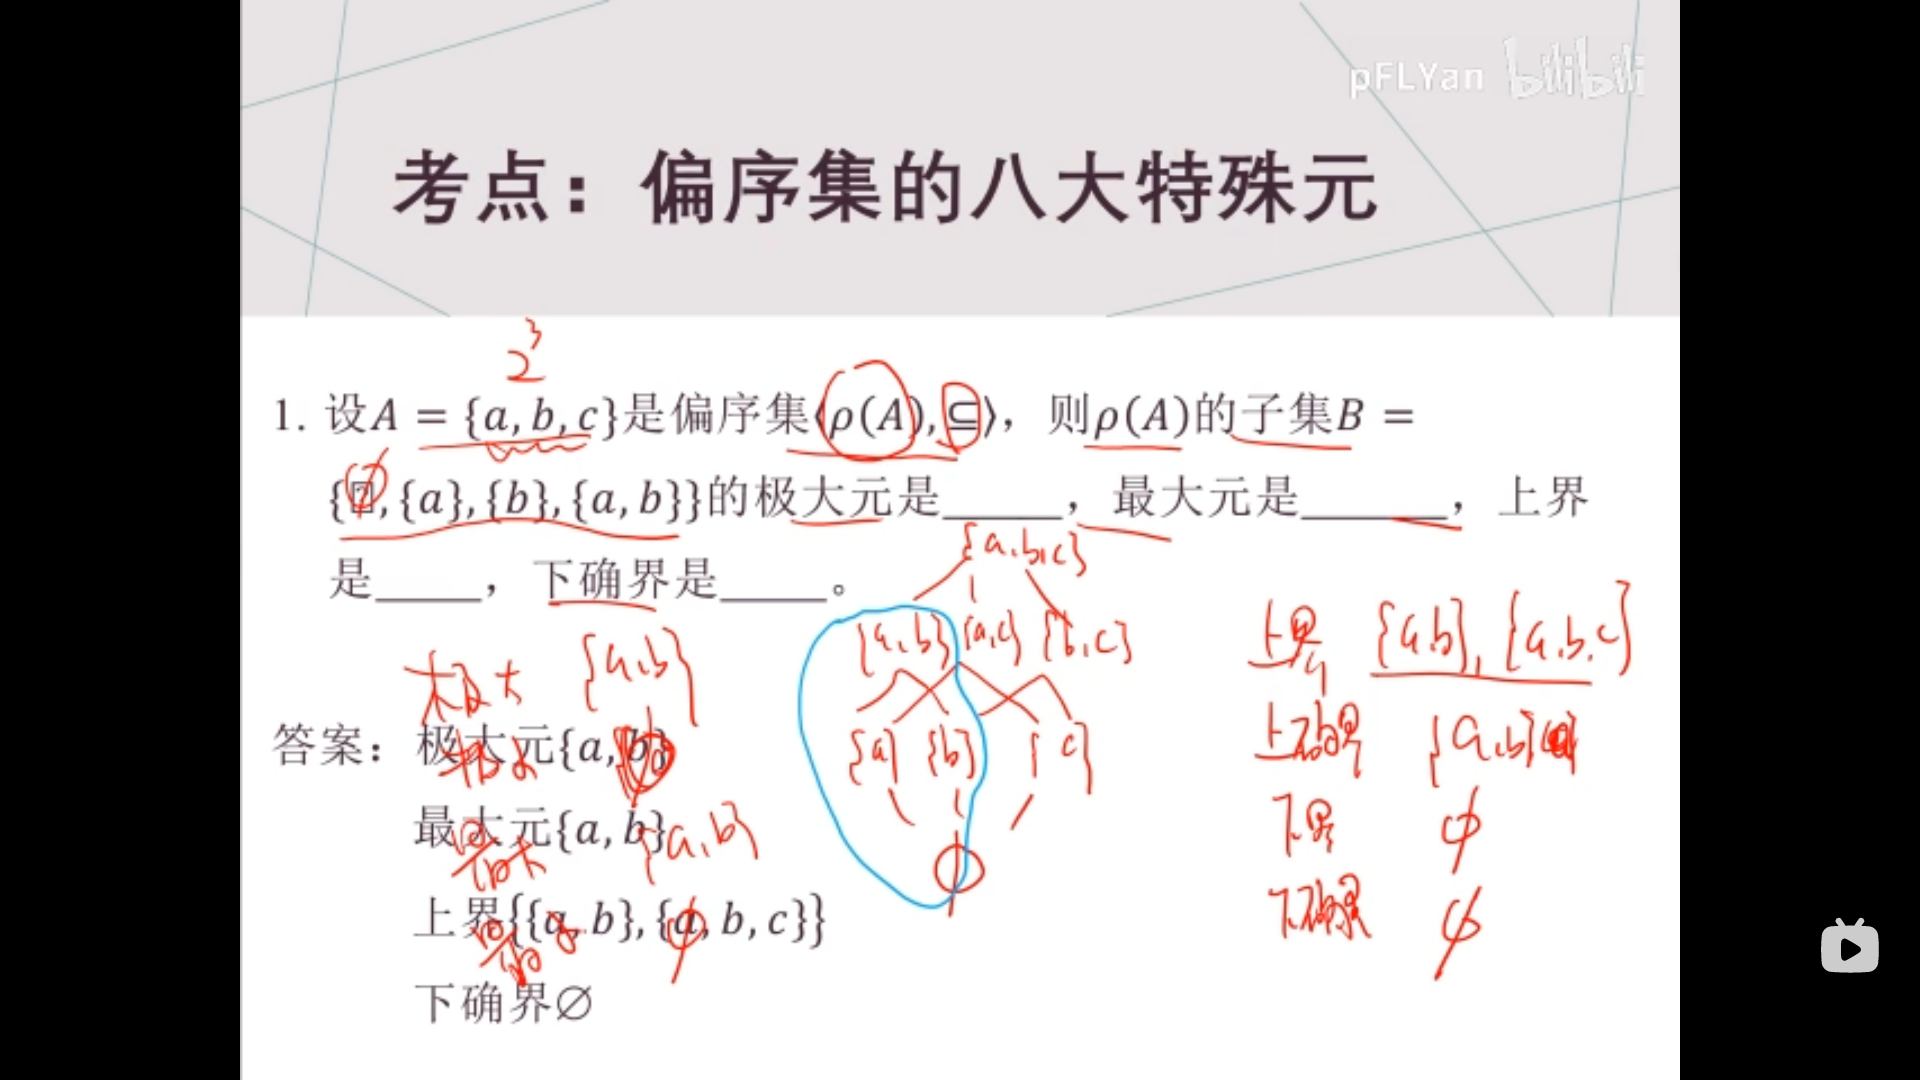 pFLYan bilibili
考点：偏序集的八大特殊元
2³
1. 设A = {a, b, c}是偏序集⟨ρ(A), ⊆⟩，则ρ(A)的子集B =
{∅, {a}, {b}, {a, b}}的极大元是_____，最大元是______，上界
是____，下确界是____。
{a,b,c}
{a,b} {a,c} {b,c}
{a} {b} {c}
∅
上界 {a,b}, {a,b,c}
上确界 {a,b}
下界 ∅
下确界 ∅
极大 {a,b}
答案：极大元{a, b}
极小 ∅
最大元{a, b}
最大 {a,b}
上界{{a, b}, {a, b, c}}
最小 ∅
下确界∅